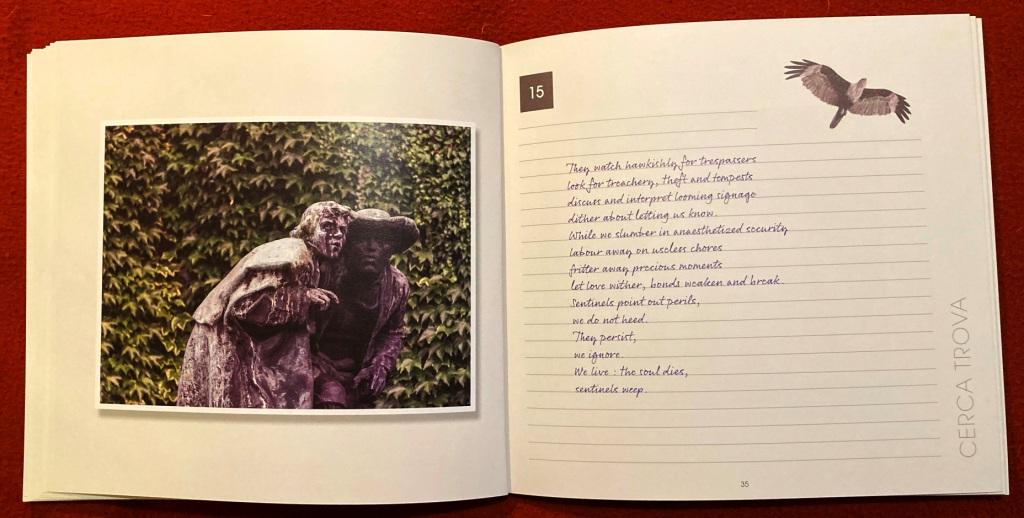 15
They watch hawkishly for trespassers
look for treachery, theft and tempests
discuss and interpret looming signage
dither about letting us know.
While we slumber in anaesthetized security
labour away on useless chores
fritter away precious moments
let love wither, bonds weaken and break.
Sentinels point out perils,
we do not heed.
They persist,
we ignore.
We live : the soul dies,
sentinels weep.
CERCA TROVA
35